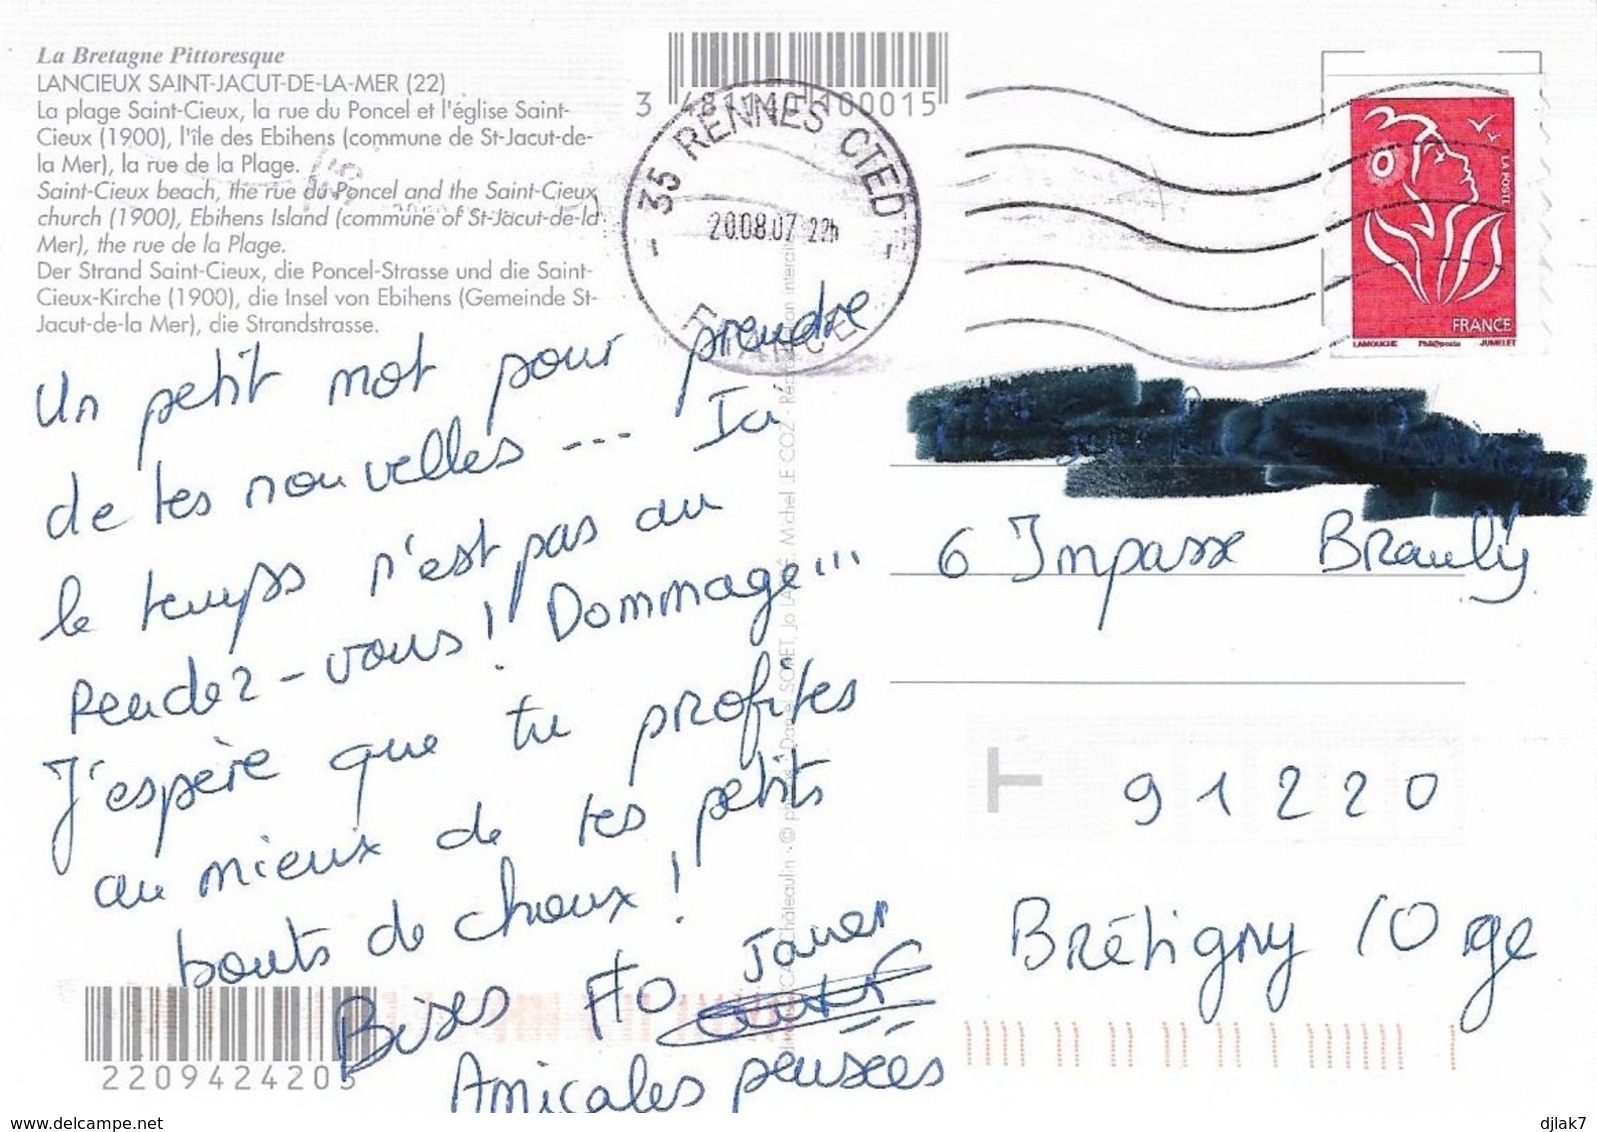 La Bretagne Pittoresque
LANCIEUX SAINT-JACUT-DE-LA-MER (22)
La plage Saint-Cieux, la rue du Poncel et l'église Saint-
Cieux (1900), l'île des Ebihens (commune de St-Jacut-de-
la Mer), la rue de la Plage.
Saint-Cieux beach, the rue du Poncel and the Saint-Cieux
church (1900), Ebihens Island (commune of St-Jacut-de-la
Mer), the rue de la Plage.
Der Strand Saint-Cieux, die Poncel-Strasse und die Saint-
Cieux-Kirche (1900), die Insel von Ebihens (Gemeinde St-
Jacut-de-la Mer), die Strandstrasse.
35 RENNES CTED
20.08.07 22h
FRANCE
LA POSTE
FRANCE
LAMOUCHE Phil@poste JUMELET
Un petit mot pour prendre
de tes nouvelles --- Ici
le temps n'est pas au
rendez-vous! Dommage...
J'espère que tu profites
au mieux de tes petits
bouts de choux!
Bises Flo
Amicales pensées
6 Impasse Brauly
91220
Brétigny /Orge
2209424205
djlak7